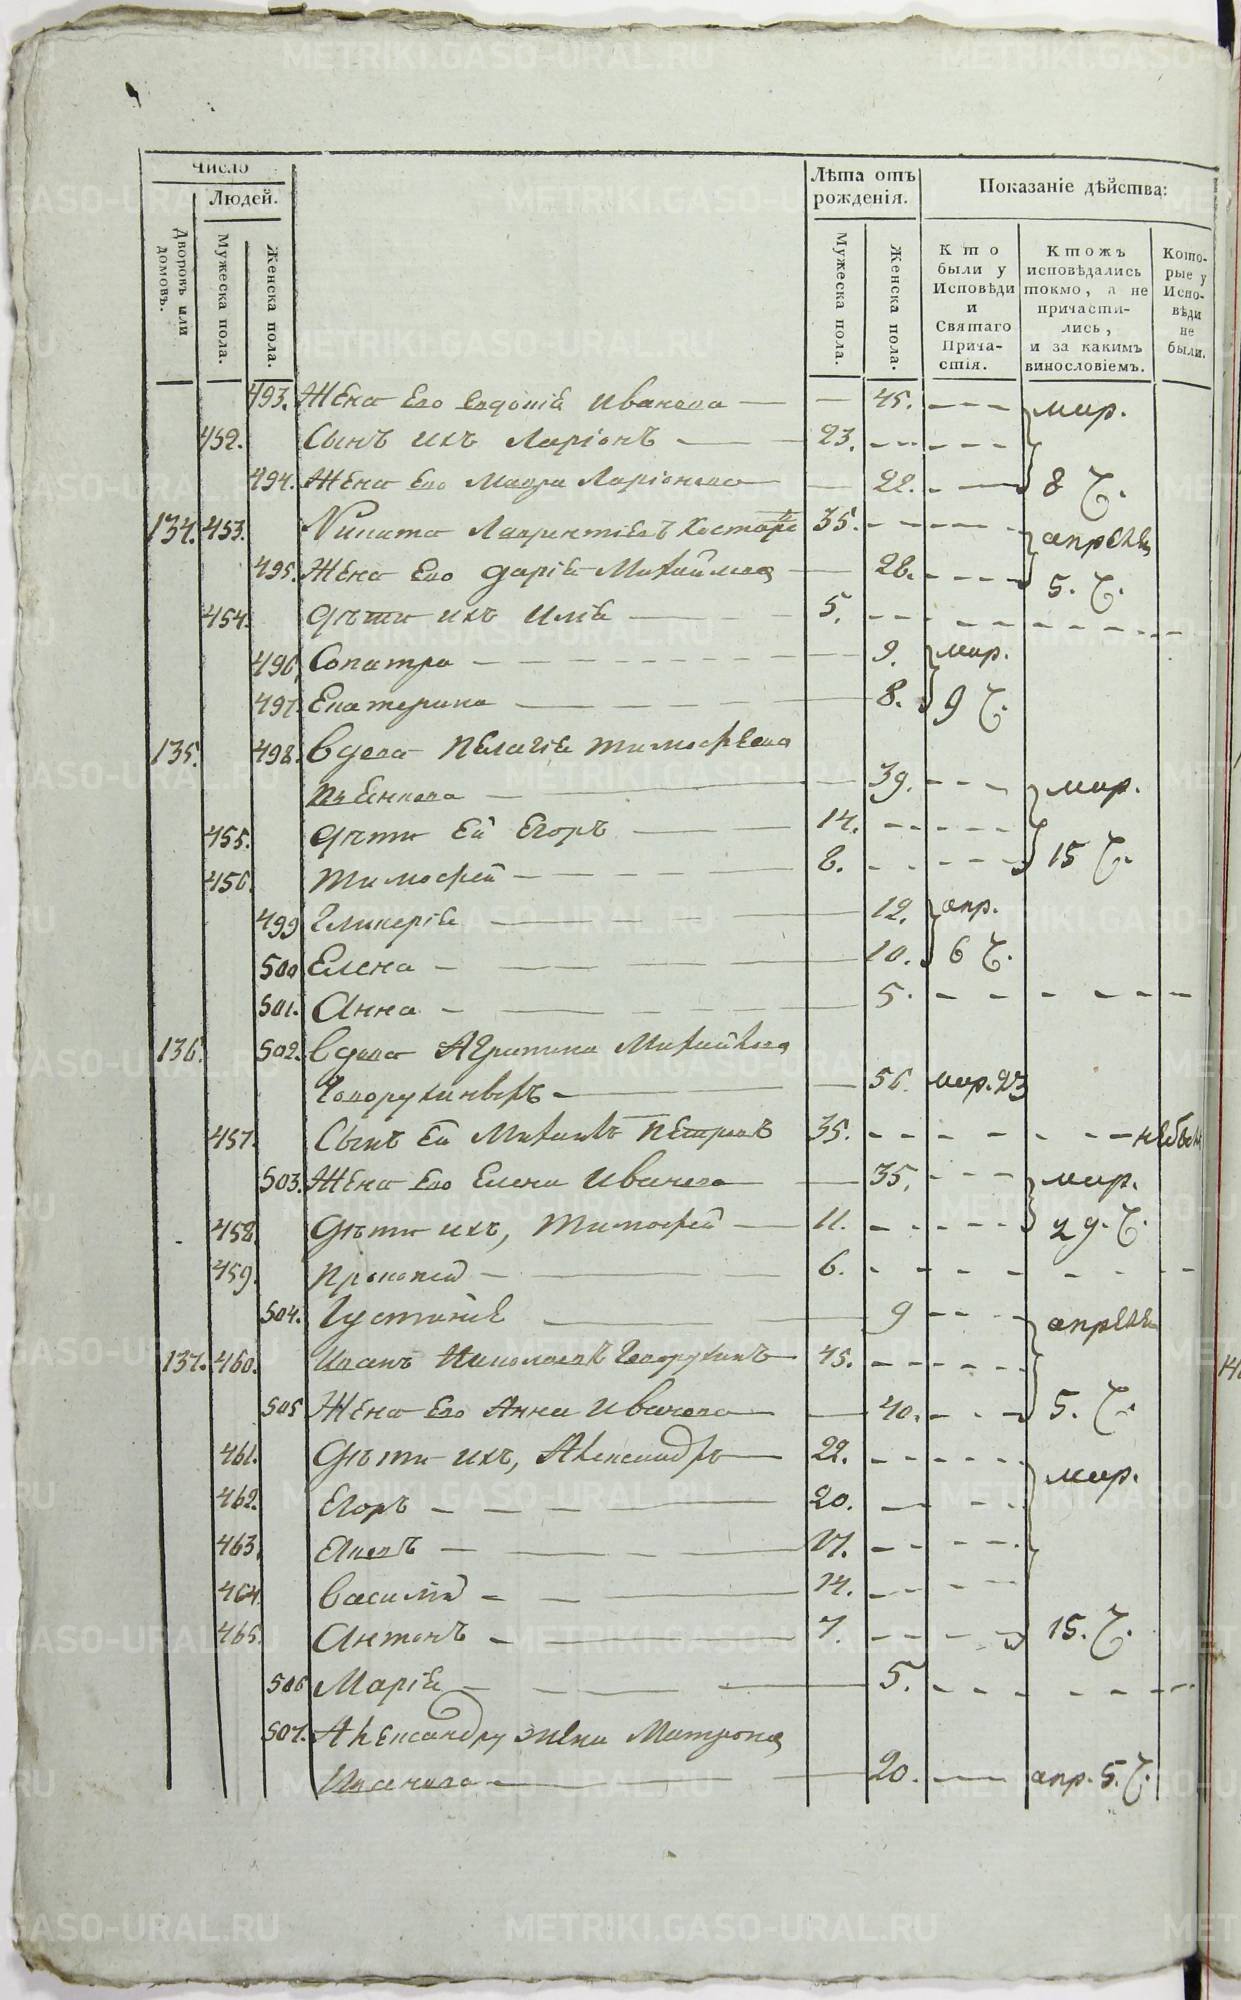 Число
Людей.
Лѣта отъ рожденія.
Показаніе дѣйства:
Дворовъ или домовъ.
Мужеска пола.
Женска пола.
Мужеска пола.
Женска пола.
Кто были у Исповѣди и Святаго Прича-стія.
Ктожъ исповѣдались токмо, а не причасти-лись, и за какимъ винословіемъ.
Кото-рые у Испо-вѣди не были.
493. Жена его Евдокія Иванова 45. мар.
452. Сынъ ихъ Ларіонъ 23.
494. Жена его Мавра Ларіонова 22. 8 Ч.
134. 453. Никита Лаврентіевъ 35. апреля
495. Жена его Дарія Михайлова 28. 5. Ч.
454. Дѣти ихъ Илія 5.
496. Сопатра 9. мар.
497. Екатерина 8. 9 Ч.
135. 498. Вдова Пелагіе Тимофѣева
39. мар.
455. Дѣти ей Егоръ 14.
456. Тимофей 8. 15 Ч.
499 Гликеріе 12. апр.
500 Елена 10. 6 Ч.
501. Анна 5.
136. 502. Вдова Агрипина Михайлова
56. мар. 23
457. Сынъ ей Михаилъ Петровъ 35. небылъ
503. Жена его Елена Иванова 35. мар.
458. Дѣти ихъ, Тимофей 11. 29. Ч.
459. Прокопей 6.
504. Іустиніе 9 апреля
137. 460. Иванъ Николаевъ 45.
505 Жена его Анна Иванова 40. 5. Ч.
461. Дѣти ихъ, Александръ 22. мар.
462. Егоръ 20.
463. Яковъ 17.
464. Василій 14.
465. Антонъ 7. 15. Ч.
506 Маріе 5.
507. Александру жена Матрона
20. апр. 5. Ч.
METRIKI.GASO-URAL.RU